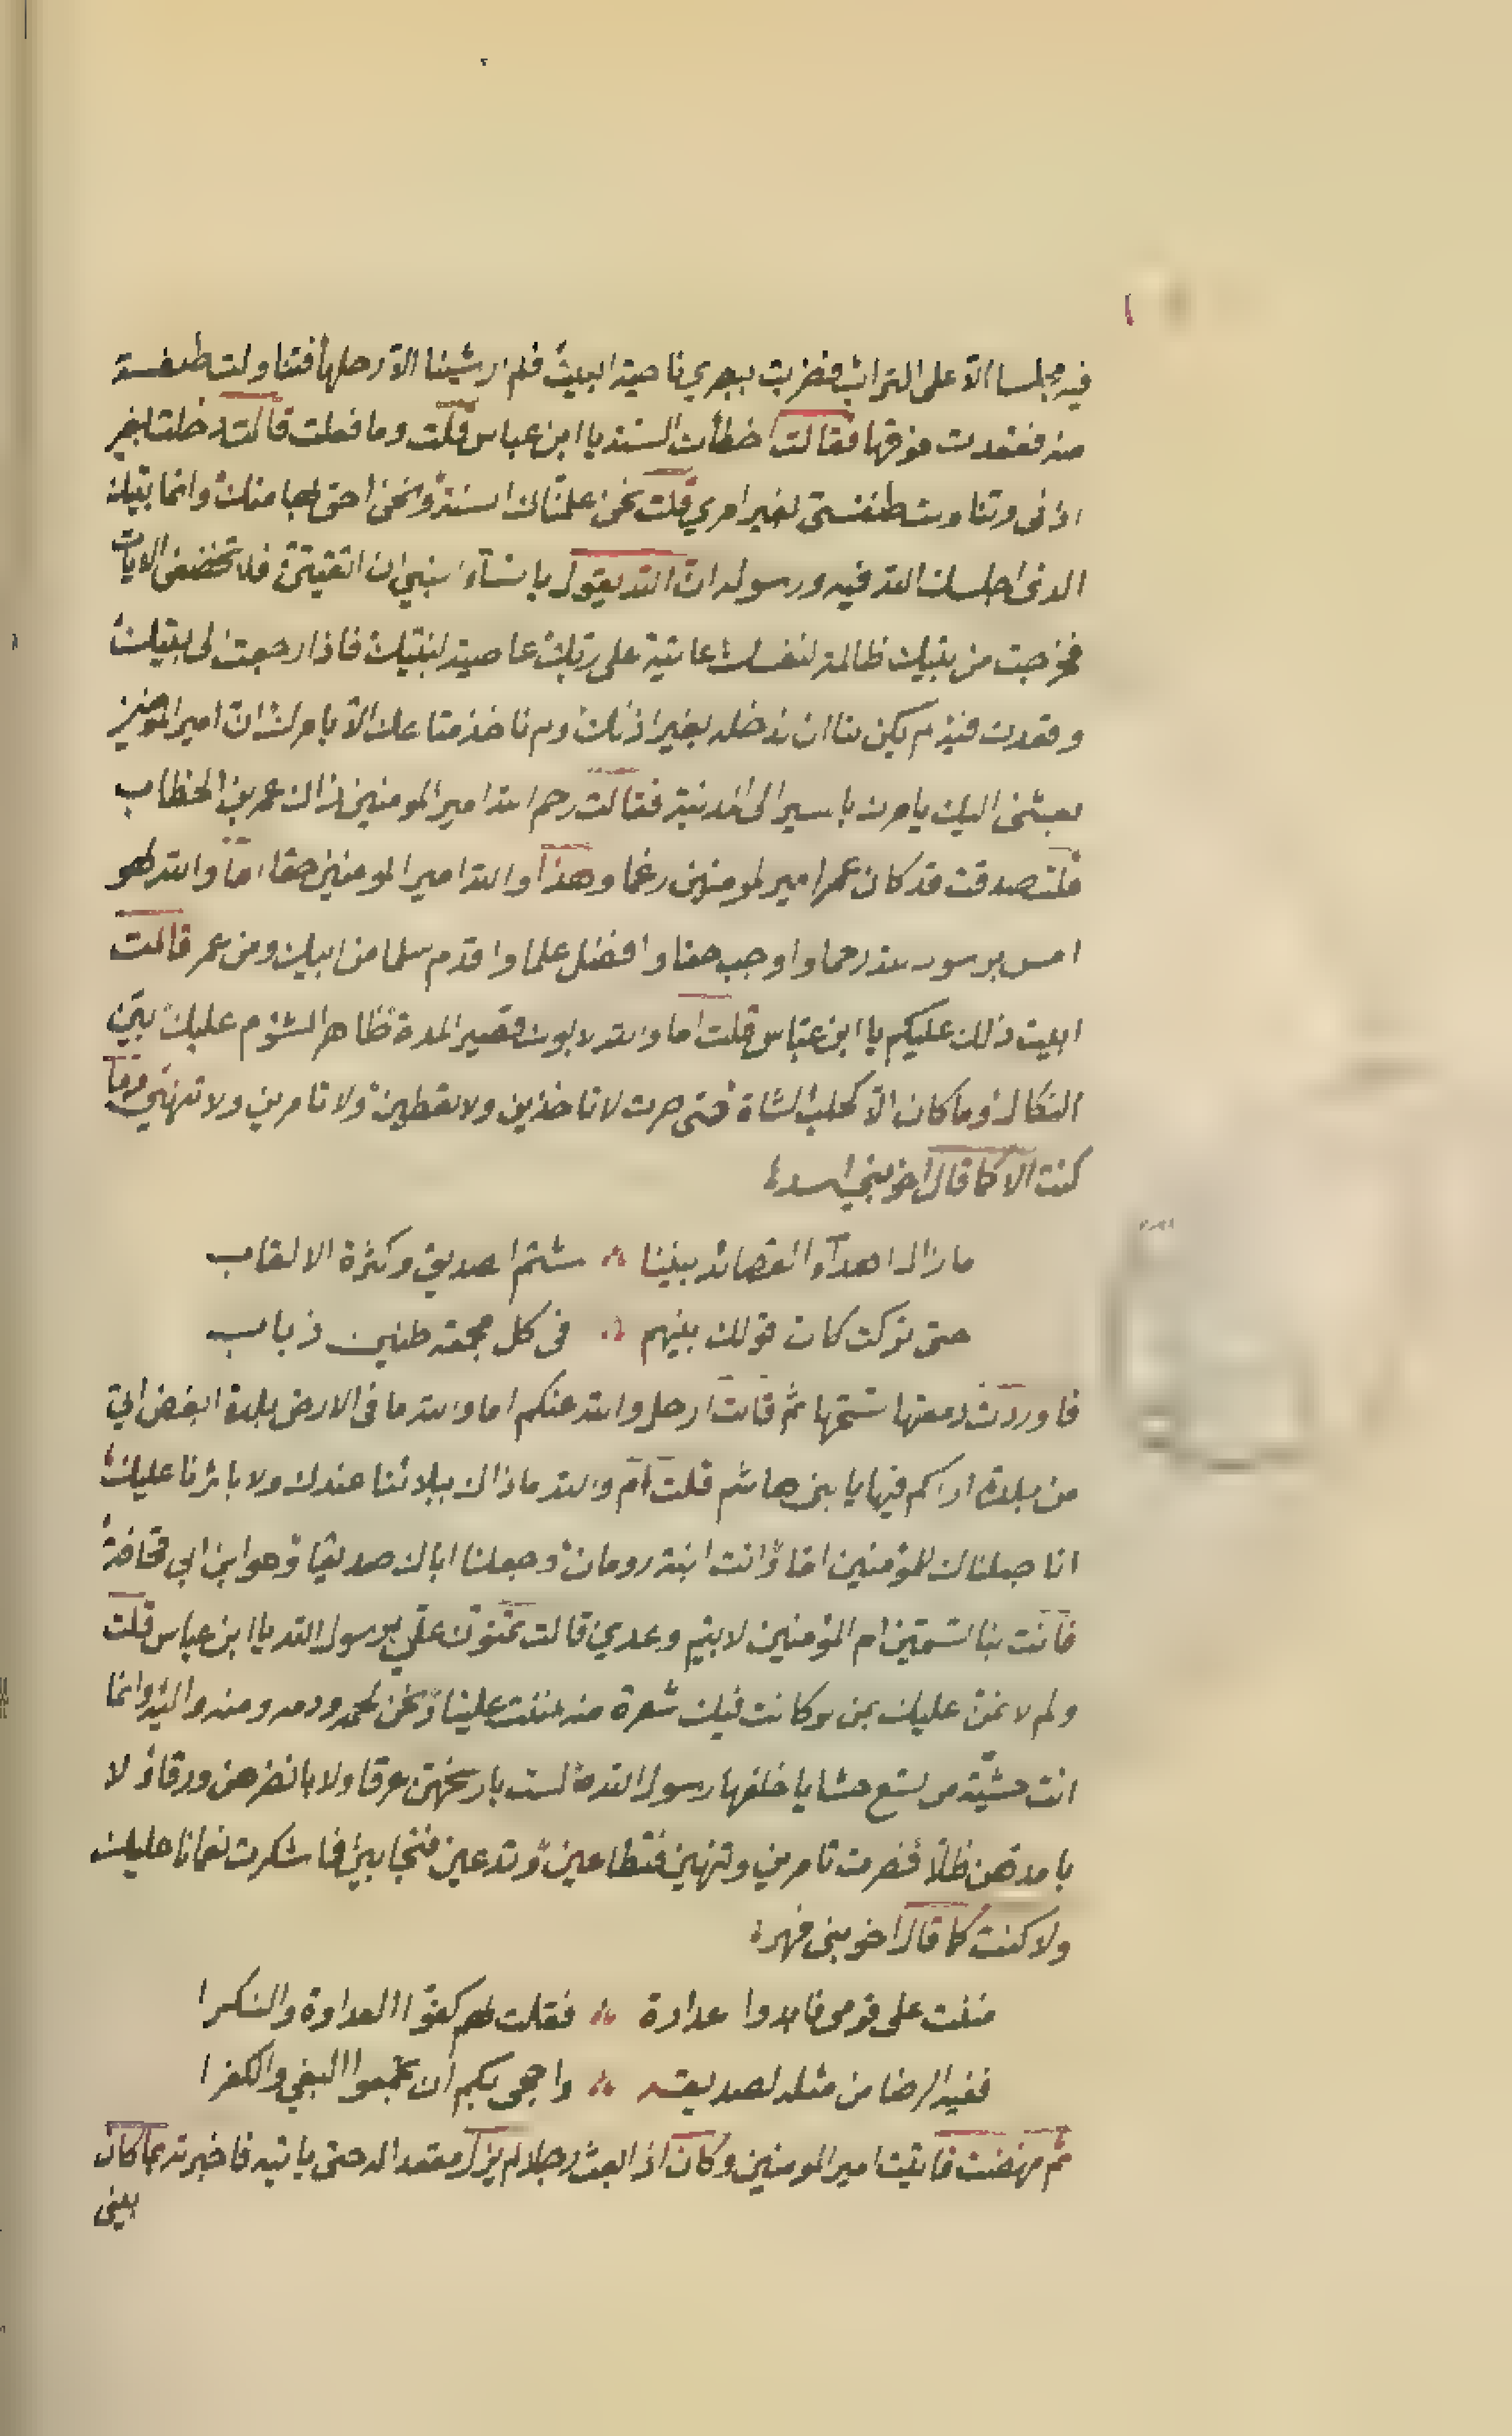 فيه مجلسا الا على التراب فضربت ببصري ناحية البيت فلم ار شيئا الا رحلها فتناولت طنفسة
منه فقعدت فوقها فقالت اخطأت السنة يا ابن عباس قلت وما فعلت قالت دخلت بغير
اذنى وتناولت طنفستى بغير امري قلت نحن علمناك السنة ونحن احق بها منك وانما بيتك
الذى اجلسك الله فيه ورسوله ان الله يقول يا نسآء النبي ان اتقيتن فلا تخضعن الايات
فخرجت من بيتك ظالمة لنفسك عاتية على ربك عاصية لنبيك فاذا رجعت الى بيتك
وقعدت فيه لم يكن لنا ان ندخله بغير اذنك ولم ناخذ متاعك الا بامرك ان امير المومنين
بعثنى اليك يامرك بالمسير الى المدينة فقالت رحم الله امير المومنين ذاك عمر بن الخطاب
قلت صدقت قد كان عمر امير المومنين رغما وهذا والله امير المومنين حقا اما والله لهو
امس برسول الله رحما واوجب حقا وافضل علما واقدم سلما من ابيك ومن عمر قالت
ابيت ذلك عليكم يا ابن عباس قلت اما والله لابوك قصير المدة ظاهر الشؤم عليك بين
النكال وما كان الا كحلب الشاة حتى صرت لا تاخذين ولا تعطين ولا تامرين ولا تنهين وما
كنت الا كما قال اخو بني اسد
ما زال اهدآء القصائد بيننا شتم الصديق وكثرة الالقاب
حتى تركت كان قولك بينهم فى كل مجمعة طنين ذباب
فاوردت دمعتها ثم قالت ارحل والله عنكم اما والله ما فى الارض بلدة ابغض الي
من بلدة اراكم فيها يا بنى هاشم قلت ام والله ماذاك ببلائنا عندك ولا باثرنا عليك
انا جعلناك للمؤمنين اما وانت ابنة رومان وجعلنا اباك صديقا وهو ابن ابي قحافة
فانت بنا تسمين ام المؤمنين لا بتيم وعدي قالت تمنون علي برسول الله يا ابن عباس قلت
ولم لا نمن عليك بمن لو كانت فيك شعرة منه مننت علينا ونحن لحمه ودمه ومنه واليه وانما
انت حشية من تسع حشايا خلفها رسول الله لست بارسخهن عرقا ولا بانضرهن ورقا ولا
بامدهن ظلا فصرت تامرين وتنهين فتطاعين وتدعين فتجابين فما شكرت نعمانا عليك
ولا كنت كما قال اخو بنى فهر
مننت على قومى فابدوا عداوة فقلت لهم كفوا العداوة والنكرا
ففيه الرضا من مثله لصديقه واحجى بكم ان تجمعوا البغي والكفرا
ثم نهضت فاتيت امير المومنين وكان اذا بعث رجلا لم يزل مقعدا له حتى ياتيه فاخبرته بما كان
بينى